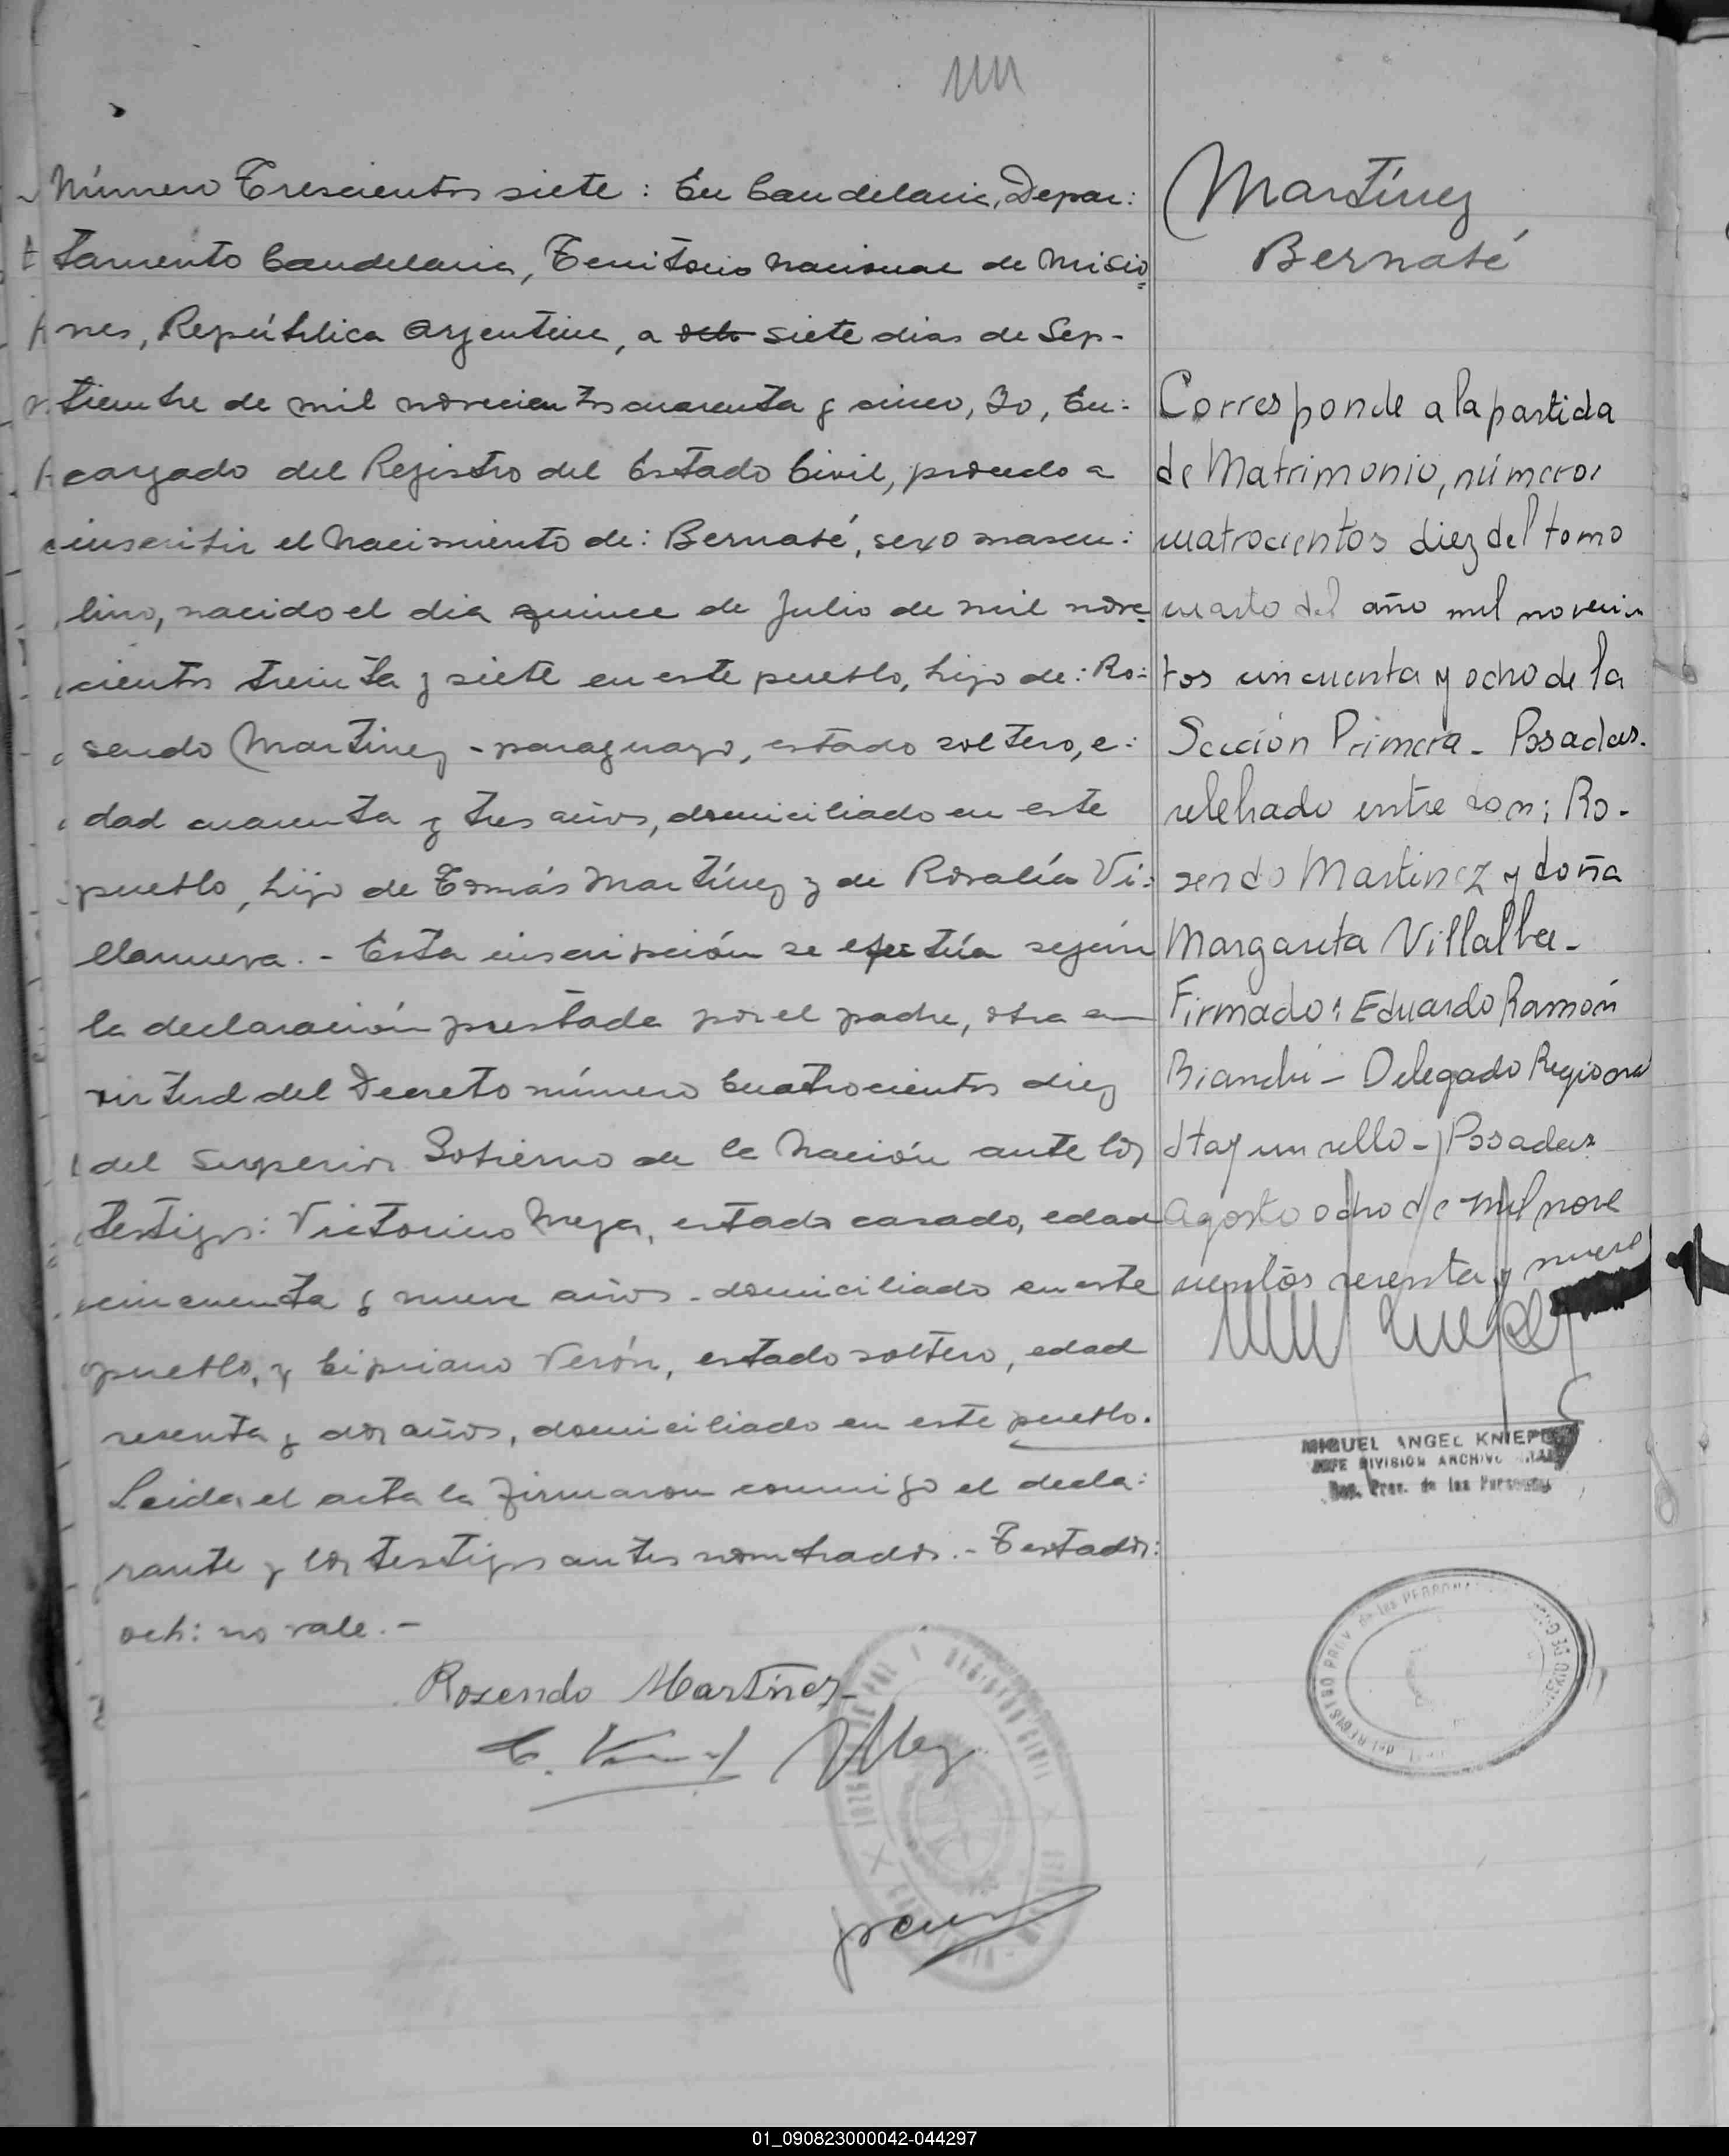 Número Trescientos siete: En Candelaria, Depar:
tamento Candelaria, Territorio Nacional de Misio=
nes, República Argentina, a och siete dias de Sep-
tiembre de mil novecientos cuarenta y cinco, Yo, En:
cargado del Registro del Estado Civil, procedo a
inscribir el Nacimiento de: Bernabé, sexo mascu:
lino, nacido el dia quince de Julio de mil nove=
cientos treinta y siete en este pueblo, hijo de: Ro:
sendo Martínez - paraguayo, estado soltero, e:
dad cuarenta y tres años, domiciliado en este
pueblo, hijo de Tomás Martínez y de Rosalía Vi:
llanueva. - Esta inscripción se efectúa según
la declaración prestada por el padre, obra en
virtud del Decreto número Cuatrocientos diez
del Superior Gobierno de la Nación ante los
testigos: Victorino Meza, estado casado, edad
cincuenta y nueve años - domiciliado en este
pueblo, y Cipriano Verón, estado soltero, edad
sesenta y dos años, domiciliado en este pueblo.
Leida el acta la firmaron conmigo el decla:
rante y los testigos antes nombrados. - Testado:
och: no vale. -
Rosendo Martínez
Martínez
Bernabé
Corresponde a la partida
de Matrimonio, número
cuatrocientos diez del tomo
cuarto del año mil novecien
tos cincuenta y ocho de la
Sección Primera - Posadas.
celebrado entre don: Ro-
sendo Martinez y doña
Margarita Villalba -
Firmado: Eduardo Ramón
Bianchi - Delegado Regional
Hay un sello - Posadas
Agosto ocho de mil nove
cientos sesenta y nueve
MIGUEL ANGEL
JEFE DIVISION ARCHIVO
Prov. de las Personas
REGISTRO PROV. de las PERSONAS
JUZGADO DE PAZ Y REGISTRO CIVIL
01_090823000042-044297